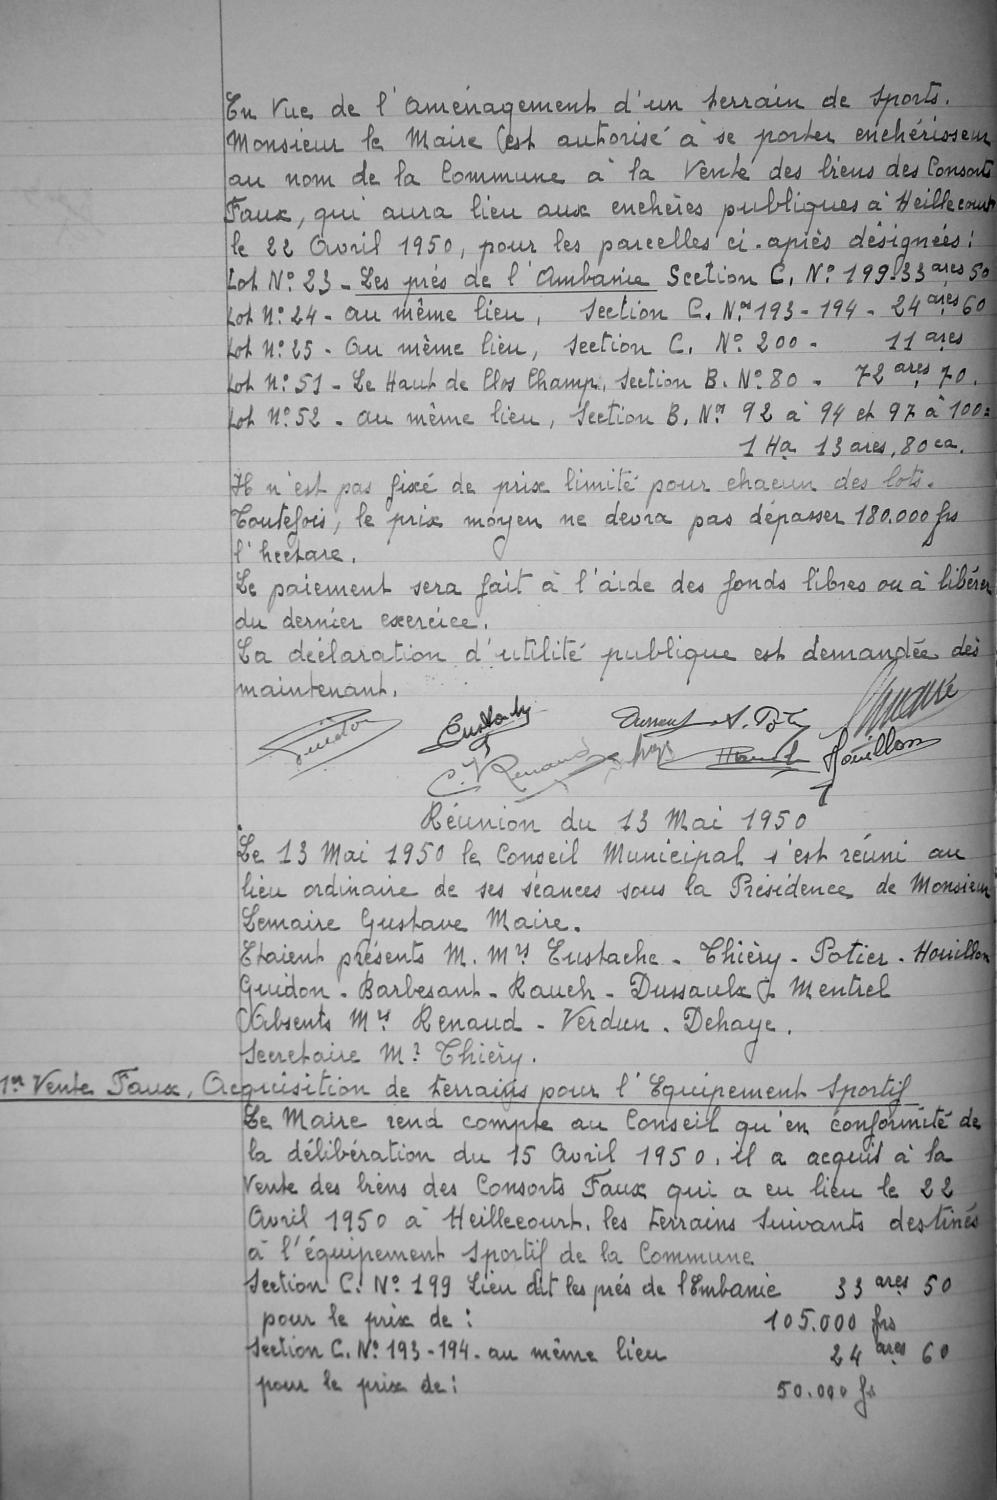 En Vue de l'aménagement d'un terrain de sports.
Monsieur le Maire est autorisé à se porter enchérisseur
au nom de la Commune à la Vente des biens des Consorts
Faux, qui aura lieu aux enchères publiques à Heillecourt
le 22 Avril 1950, pour les parcelles ci-après désignées :
Lot N° 23 - Les prés de l'Ambanie Section C. N° 199 - 33 ares 50
Lot N° 24 - au même lieu, Section C. Nos 193 - 194 - 24 ares 60
Lot N° 25 - au même lieu, Section C. N° 200 - 11 ares
Lot N° 51 - Le Haut de Clos Champ, Section B. N° 80 - 72 ares 70.
Lot N° 52 - au même lieu, Section B. Nos 92 à 94 et 97 à 100 :
1 Ha 13 ares, 80 ca.
Il n'est pas fixé de prix limité pour chacun des lots.
Toutefois, le prix moyen ne devra pas dépasser 180.000 frs
l'hectare.
Le paiement sera fait à l'aide des fonds libres ou à libérer
du dernier exercice.
La déclaration d'utilité publique est demandée dès
maintenant.
Guidon Eustache Dussaulx A. Potier Lemaire
C. Renaud Houillon
Réunion du 13 Mai 1950
Le 13 Mai 1950 le Conseil Municipal s'est réuni au
lieu ordinaire de ses séances sous la Présidence de Monsieur
Lemaire Gustave Maire.
Etaient présents M. Mrs Eustache - Thièry - Potier - Houillon
Guidon - Barbesant - Rauch - Dussaulx & Mentrel
Absents Mrs Renaud - Verdun - Dehaye.
Secretaire Mr Thièry.
1er Vente Faux, Acquisition de terrains pour l'Equipement Sportif
Le Maire rend compte au Conseil qu'en conformité de
la délibération du 15 Avril 1950, il a acquis à la
Vente des biens des Consorts Faux qui a eu lieu le 22
Avril 1950 à Heillecourt, les terrains suivants destinés
à l'équipement Sportif de la Commune
Section C. N° 199 Lieu dit les prés de l'Embanie 33 ares 50
pour le prix de : 105.000 frs
Section C. N° 193 - 194 - au même lieu 24 ares 60
pour le prix de : 50.000 frs